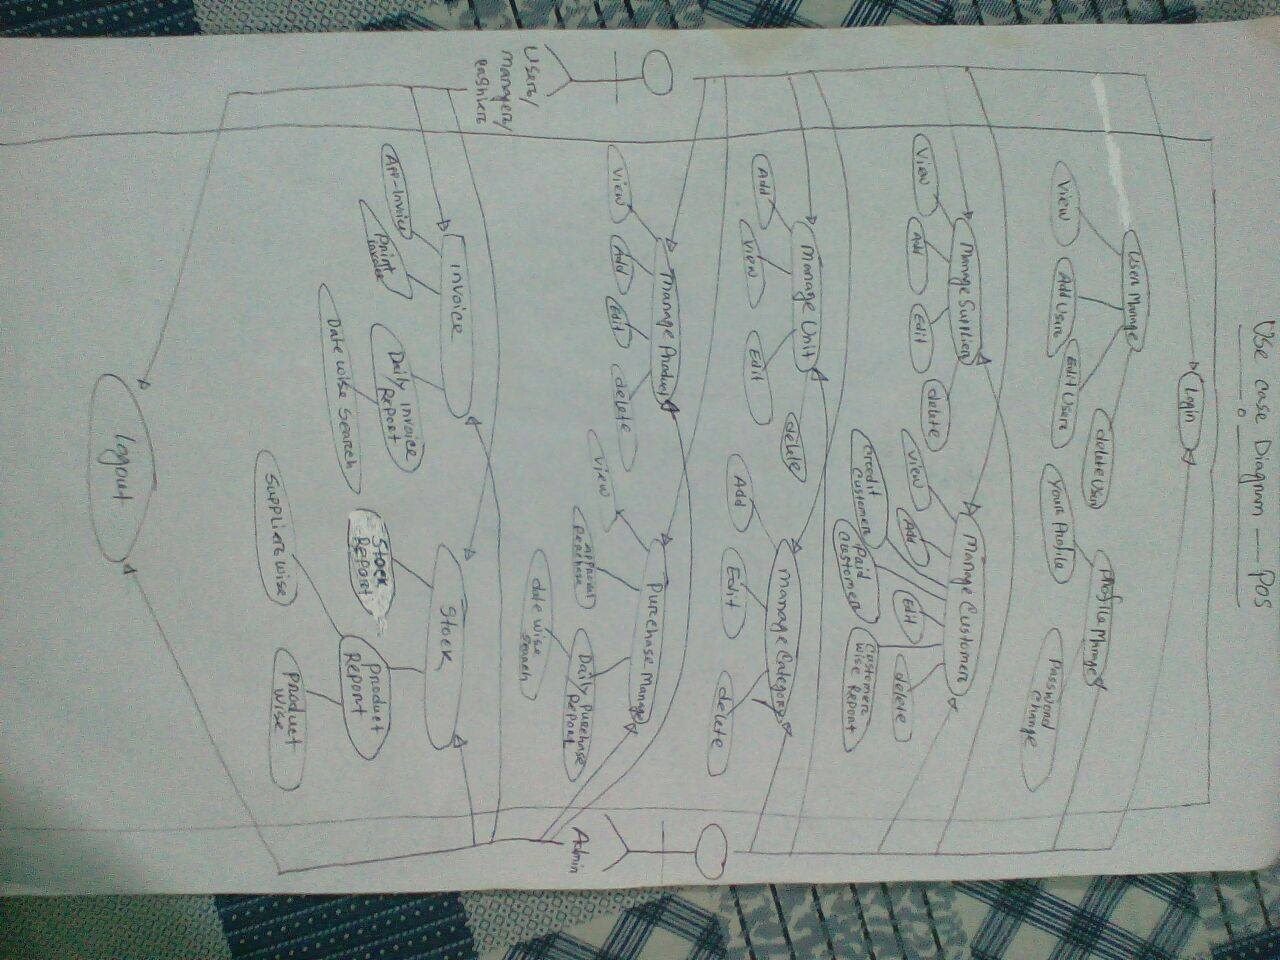 Use case Diagram — POS
Login
User Manage
View
Add Users
Edit Users
delete User
Profile Manage
Your Profile
Password
change
Manage Supplier
View
Add
Edit
delete
Manage Customers
View
Add
Edit
delete
Credit
Customer
Paid
Customer
Customer
wise Report
Manage Unit
Add
View
Edit
delete
Manage Category
Add
Edit
delete
Users/
Managers/
cashiers
Admin
Manage Product
View
Add
Edit
delete
Purchase Manage
View
Approval
Purchase
Daily Purchase
Report
date wise
Search
Invoice
App-Invoice
Print
Invoice
Daily Invoice
Report
Date wise Search
Stock
Stock
Report
Product
Report
Supplier wise
Product
wise
Logout